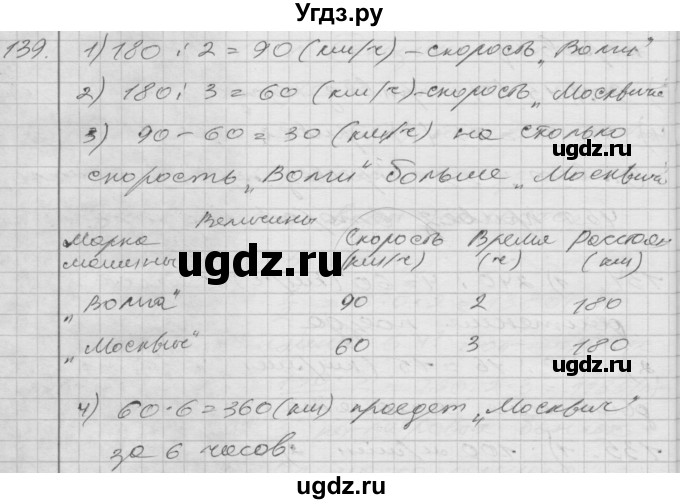 Угдз.ру
139. 1) 180 : 2 = 90 (км/ч) – скорость „Волги"
2) 180 : 3 = 60 (км/ч) – скорость „Москвича"
3) 90 – 60 = 30 (км/ч) на сколько
скорость „Волги" больше „Москвича"
Величины
Марка Скорость Время Расстоян
машины (км/ч) (ч) (км)
„Волга" 90 2 180
„Москвич" 60 3 180
4) 60 · 6 = 360 (км) проедет „Москвич"
за 6 часов.
gdz.ru
gdz.ru
Угдз.ру